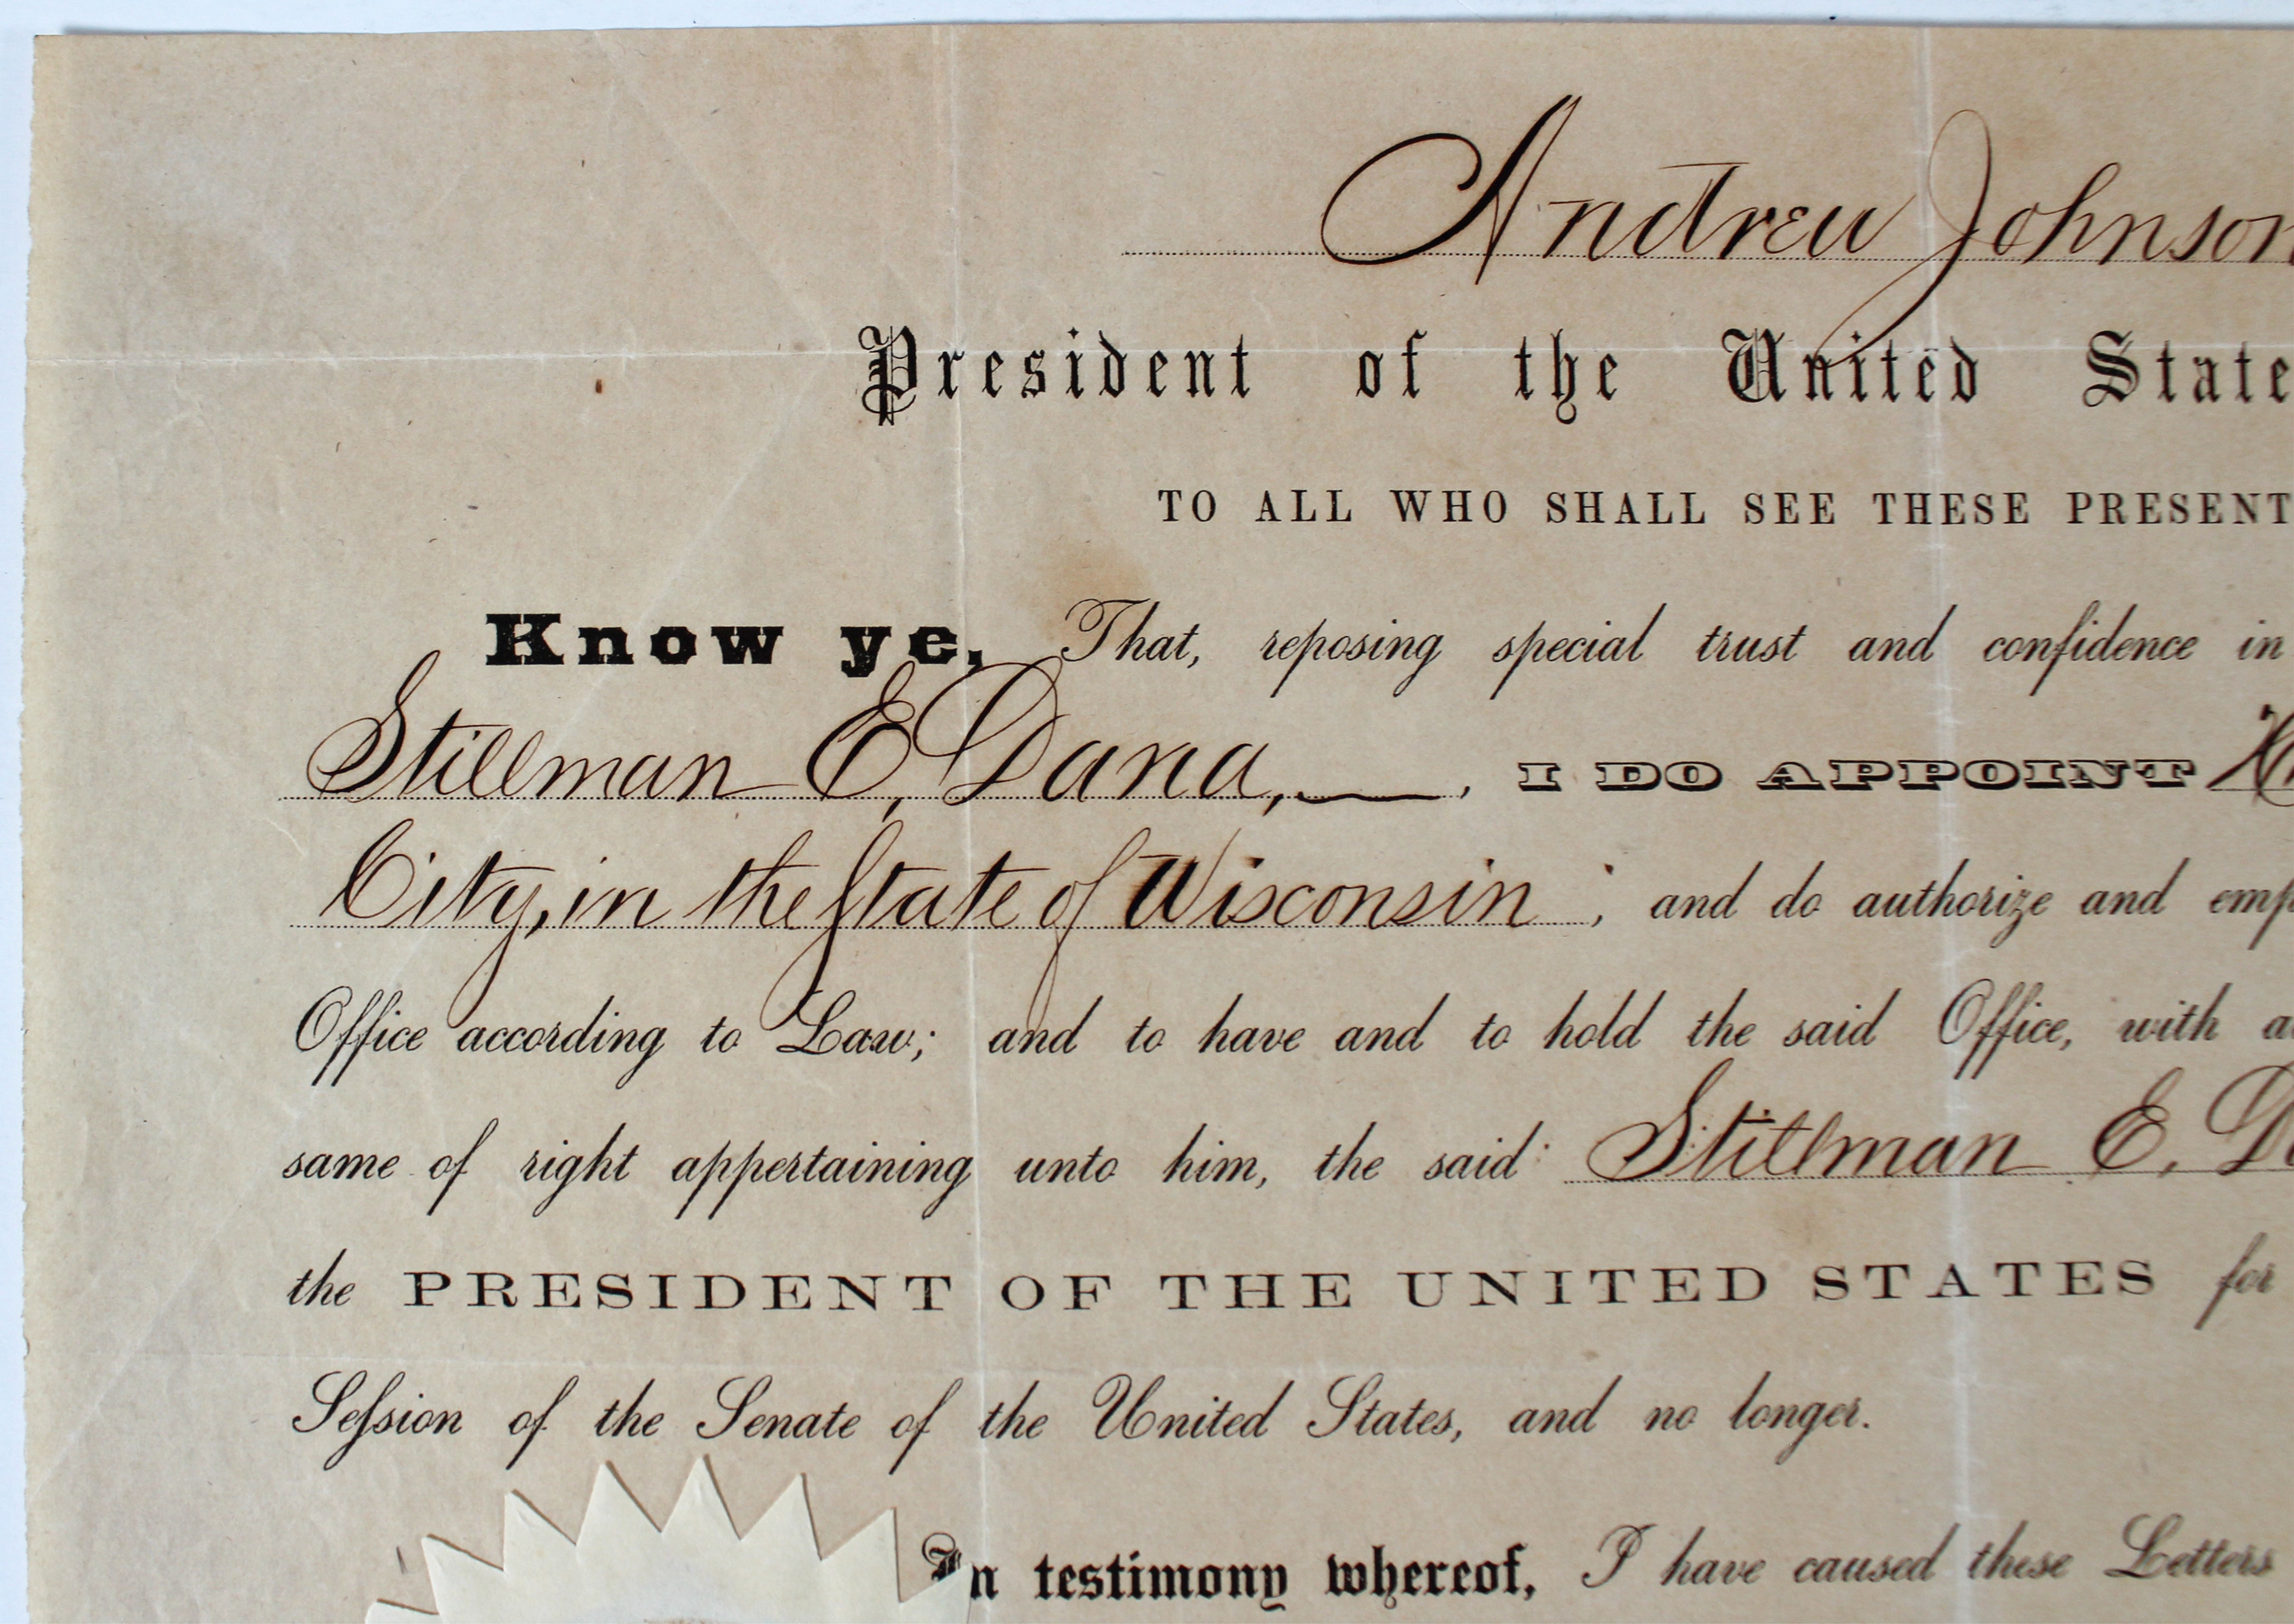 Andrew Johnson
President of the United State
TO ALL WHO SHALL SEE THESE PRESENT
Know ye, That, reposing special trust and confidence in
Stillman E. Dana, —, I DO APPOINT
City, in the State of Wisconsin; and do authorize and emp
Office according to Law; and to have and to hold the said Office, with a
same of right appertaining unto him, the said Stillman E. D
the PRESIDENT OF THE UNITED STATES for
Seſsion of the Senate of the United States, and no longer.
In testimony whereof, I have caused these Letters